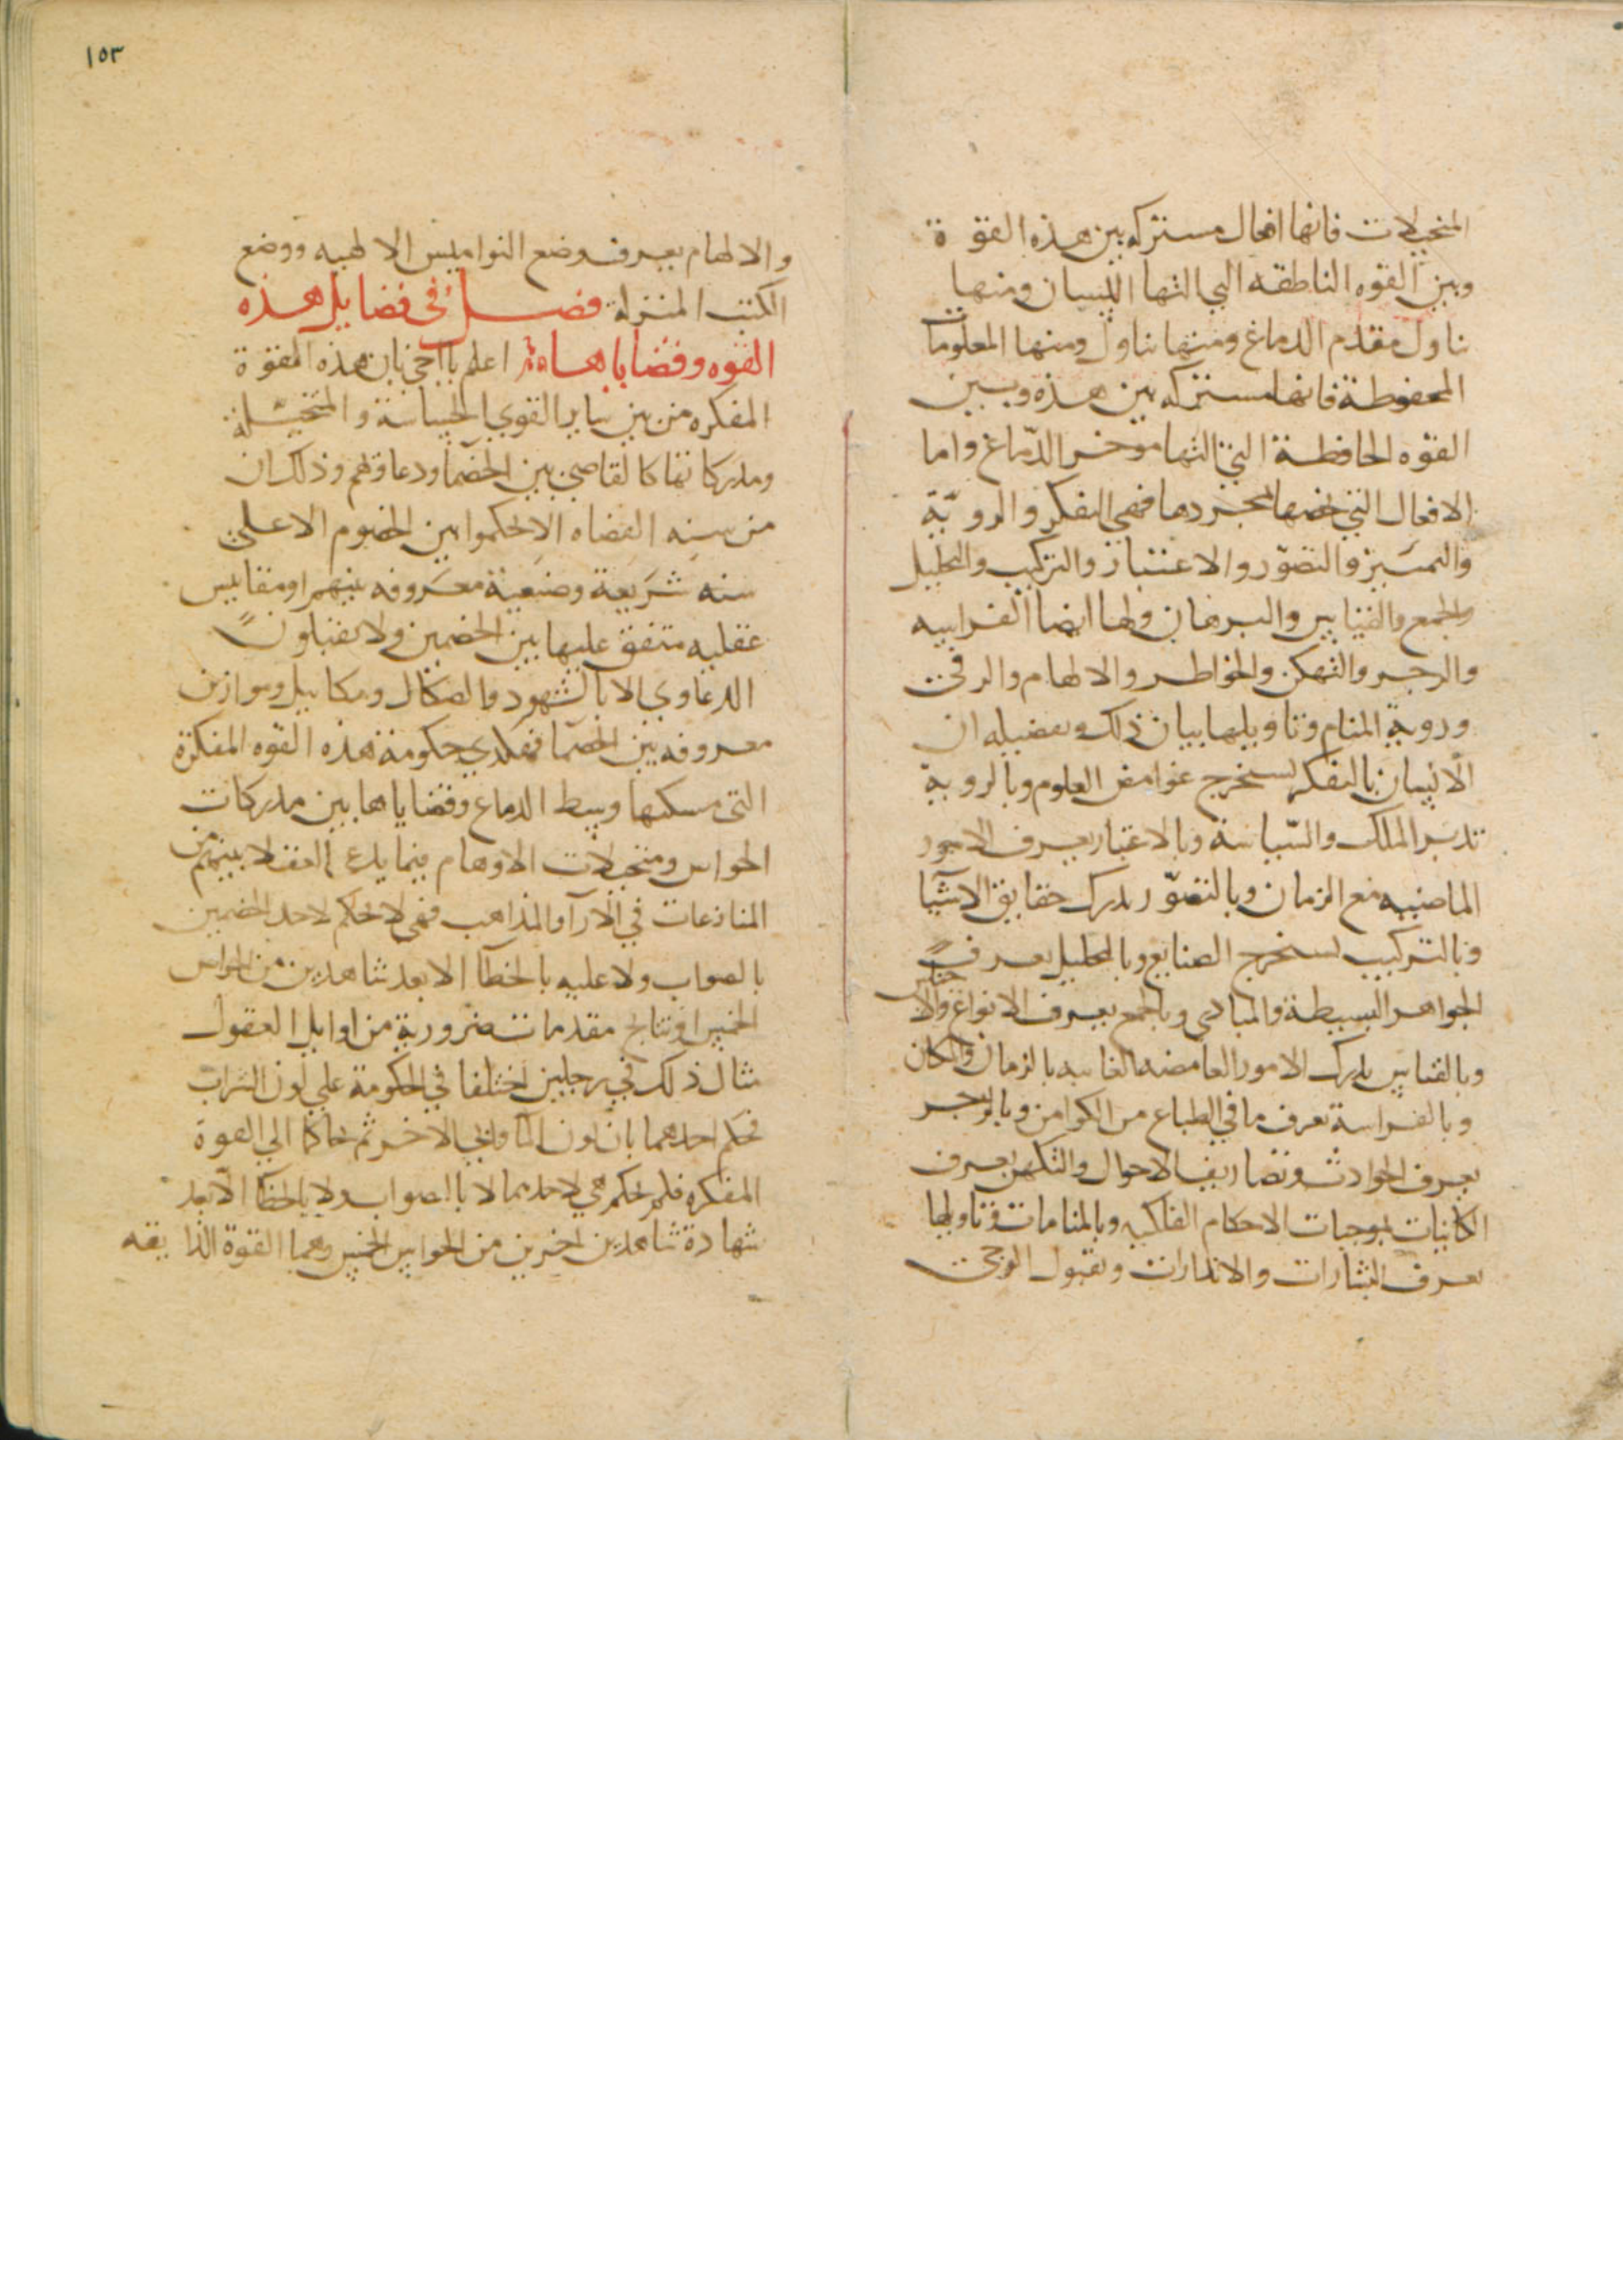 المتخيلات فانها افعال مشتركه بين هذه القوة
وبين القوه الناطقه التي التها اللسان ومنها
تناول مقدم الدماغ ومنها تناول ومنها المعلومات
المحفوظة فانها مشتركه بين هذه وبين
القوه الحافظة التي التها موخر الدّماغ واما
الافعال التي تخصها بمجردها فهي التفكر والرويّة
والتمييز والتصوّر والاعتبار والتركيب والتحليل
والجمع والقياس والبرهان ولها ايضا الفراسه
والزجر والتهكن والخواطر والالهام والوحي
وروية المنام وتاويلها بيان ذلك وتفضيله ان
الانسان بالتفكر يستخرج غوامض العلوم وبالروية
تدبير الملك والسّياسة وبالاعتبار يعرف الامور
الماضيه مع الزمان وبالتصوّر يدرك حقايق الاشيا
وبالتركيب يستخرج الصنايع وبالتحليل يعرف
الجواهر البسيطة والمبادي وبالجمع يعرف الانواع والاجناس
وبالقياس يدرك الامور الغامضه الغايبه بالزمان والمكان
وبالفراسة يعرف ما في الطباع من الكوامن وبالزجر
يعرف الحوادث وتصاريف الاحوال والتكهن يعرف
الكاينات بموجبات الاحكام الفلكيه وبالمنامات وتاويلها
يعرف البشارات والانذارات وبقبول الوحي
١٥٣
والالهام يعرف وضع النواميس الالهيه ووضع
الكتب المنزلة فصل في فضايل هذه
القوه وقضاياها اعلم يا اخي بان هذه القوة
المفكره من بين ساير القوي الحساسة والمتخيلة
ومدركاتها كالقاضي بين الخصما ودعاويهم وذلك ان
من سنه القضاه الا يحكموا بين الخصوم الا علي
سنه شريعة وضعية معروفه بينهم او مقاييس
عقليه متفق عليها بين الخصمين ولا يقبلون
الدعاوي الا بالشهود والصكاك ومكاييل وموازين
معروفه بين الخصما فهكذي حكومة هذه القوه المفكرة
التي مسكنها وسط الدماغ وقضاياها بين مدركات
الحواس ومتخيلات الاوهام فيما يدعي العقلا بينهم من
المنازعات في الارآ والمذاهب فهي لا تحكم لاحد الخصمين
بالصواب ولا عليه بالخطآ الا بعد شاهدين من الحواس
الخمس او نتايج مقدمات ضرورية من اوايل العقول
مثال ذلك في رجلين اختلفا في الحكومة علي لون الشراب
فحكم احدهما بان لون المآ وابي الاخر ثم تحاكما الي القوة
المفكره فلم تحكم هي لاحدهما لا بالصواب ولا بالخطا الا بعد
شهادة شاهدين اخرين من الحواس الخمس وهما القوة الذايقه